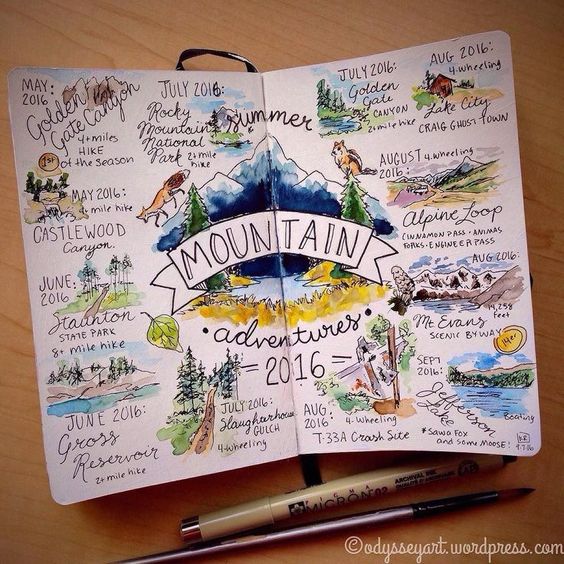 MAY:
2016
Golden
Gate Canyon
4+ miles
HIKE
of the Season
1st
MAY 2016:
mile hike
CASTLEWOOD
Canyon.
JUNE:
2016
Staunton
STATE PARK
8+ mile hike
JUNE 2016:
Gross
Reservoir
2+ mile hike
JULY 2016:
Rocky
Mountain
National
Park
2+ mile
hike
JULY 2016:
Slaughterhouse
GULCH
4-wheeling
summer
MOUNTAIN
adventures
= 2016 =
JULY 2016:
Golden
Gate
CANYON
2+ mile hike
AUG 2016:
4-wheeling
Lake City
CRAIG GHOST TOWN
AUGUST
2016:
4-wheeling
Alpine Loop
CINNAMON PASS • ANIMAS
FORKS • ENGINEER PASS
AUG 2016:
14,258
feet
Mt. Evans
SCENIC BYWAY
14er
AUG
2016:
4-Wheeling
T-33A Crash Site
SEPT
2016:
Jefferson
Lake
Boating
* Saw a FOX
and some MOOSE!
9.7.16
SAKURA
PIGMA
MICRON 02
ARCHIVAL INK
©odysseyart.wordpress.com